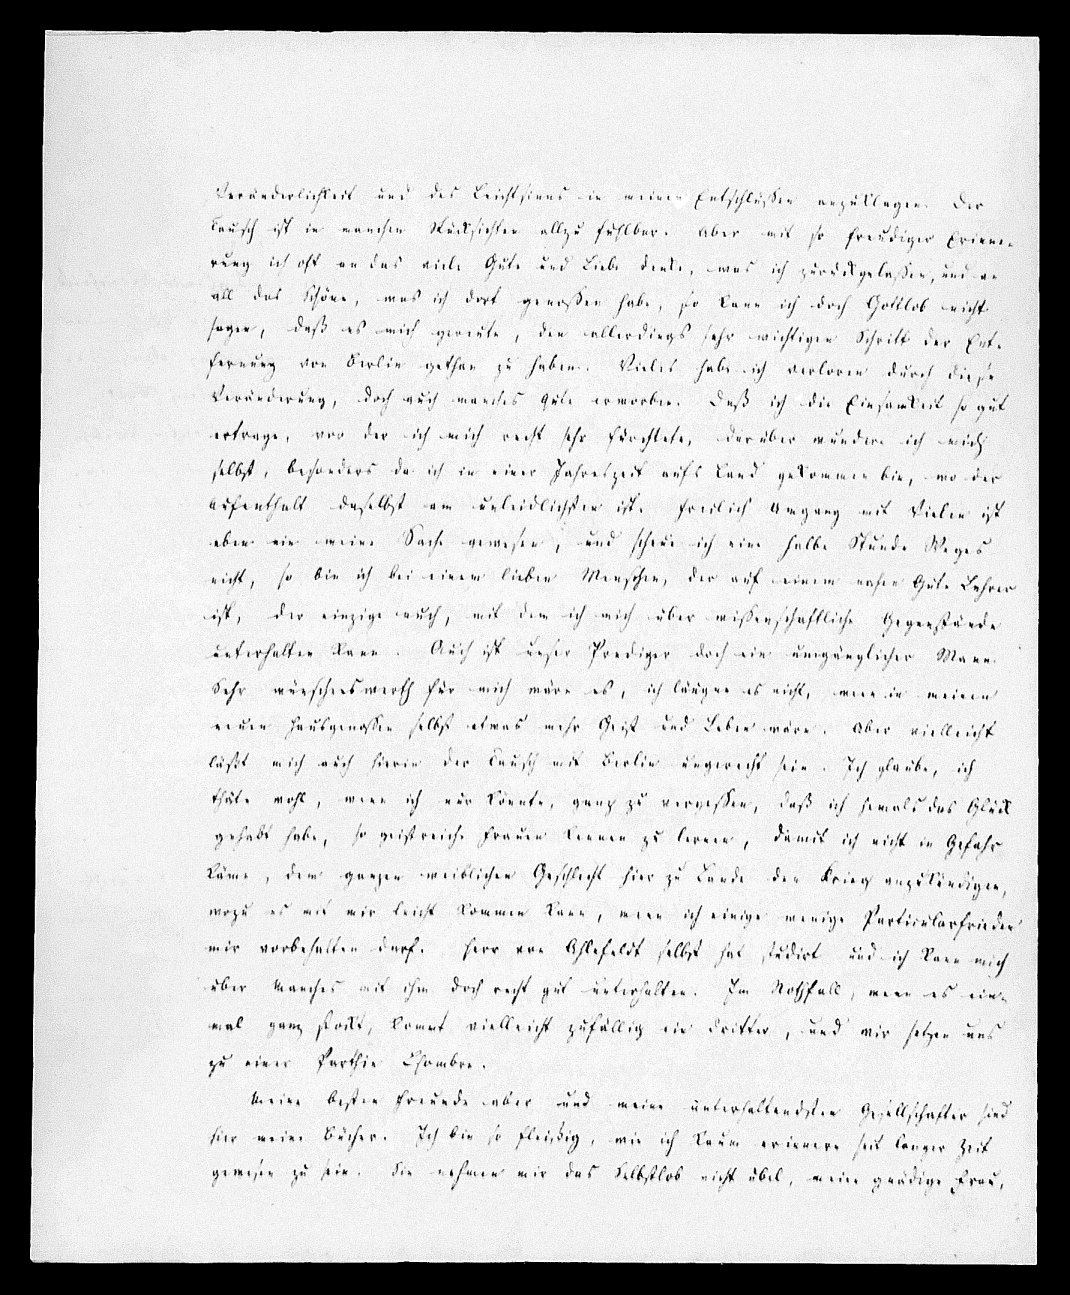 Veränderlichkeit und des Leichtsinns in meinen Entschlüssen anzuklagen. Der
Tausch ist in manchen Rücksichten allzu fühlbar. Aber mit so freudiger Erinne-
rung ich oft an das viele Gute und Liebe denke, was ich zurückgelassen, und an
all das Schöne, was ich dort genossen habe, so kann ich doch Gottlob nicht
sagen, daß es mich gereute, den allerdings sehr wichtigen Schritt der Ent-
fernung von Berlin gethan zu haben. Vieles habe ich verloren durch diese
Veränderung, doch auch manches Gute erworben. Daß ich die Einsamkeit so gut
ertrage, vor der ich mich recht sehr fürchtete, darüber wundere ich mich
selbst, besonders da ich in einer Jahreszeit aufs Land gekommen bin, wo der
Aufenthalt daselbst am unleidlichsten ist. Freilich Umgang mit Vielen ist
eben nie meine Sache gewesen, und scheue ich eine halbe Stunde Weges
nicht, so bin ich bei einem lieben Menschen, der auf einem nahen Gute Lehrer
ist, der einzige auch, mit dem ich mich über wissenschaftliche Gegenstände
unterhalten kann. Auch ist unser Prediger doch ein umgänglicher Mann.
Sehr wünschenswerth für mich wäre es, ich läugne es nicht, wenn in meinen
neuen Hausgenossen selbst etwas mehr Geist und Leben wäre. Aber vielleicht
läßt mich auch hierin der Tausch mit Berlin ungerecht sein. Ich glaube, ich
thäte wohl, wenn ich nur könnte, ganz zu vergessen, daß ich jemals das Glück
gehabt habe, so geistreiche Frauen kennen zu lernen, damit ich nicht in Gefahr
käme, dem ganzen weiblichen Geschlecht hier zu Lande den Krieg anzukündigen,
wozu es mit mir leicht kommen kann, wenn ich einige wenige Particularfrieden
mir vorbehalten darf. Herr von Ahlefeldt selbst hat studirt und ich kann mich
über Manches mit ihm doch recht gut unterhalten. Im Nothfall, wenn es ein-
mal ganz stockt, kommt vielleicht zufällig ein Dritter, und wir setzen uns
zu einer Parthie L'hombre.
Meine besten Freunde aber und meine unterhaltendsten Gesellschafter sind
hier meine Bücher. Ich bin so fleißig, wie ich kaum erinnere seit langer Zeit
gewesen zu sein. Sie nehmen mir das Selbstlob nicht übel, meine gnädige Frau,